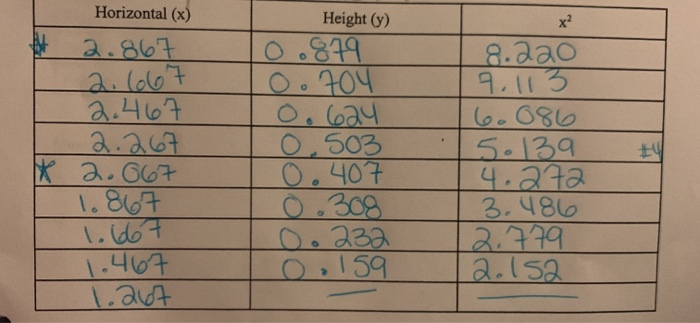 Horizontal (x) Height (y) x²
* 2.867 0.879 8.220
2.667 0.704 9.113
2.467 0.624 6.086
2.267 0.503 5.139 #4
* 2.067 0.407 4.272
1.867 0.308 3.486
1.667 0.232 2.779
1.467 0.159 2.152
1.267 — —